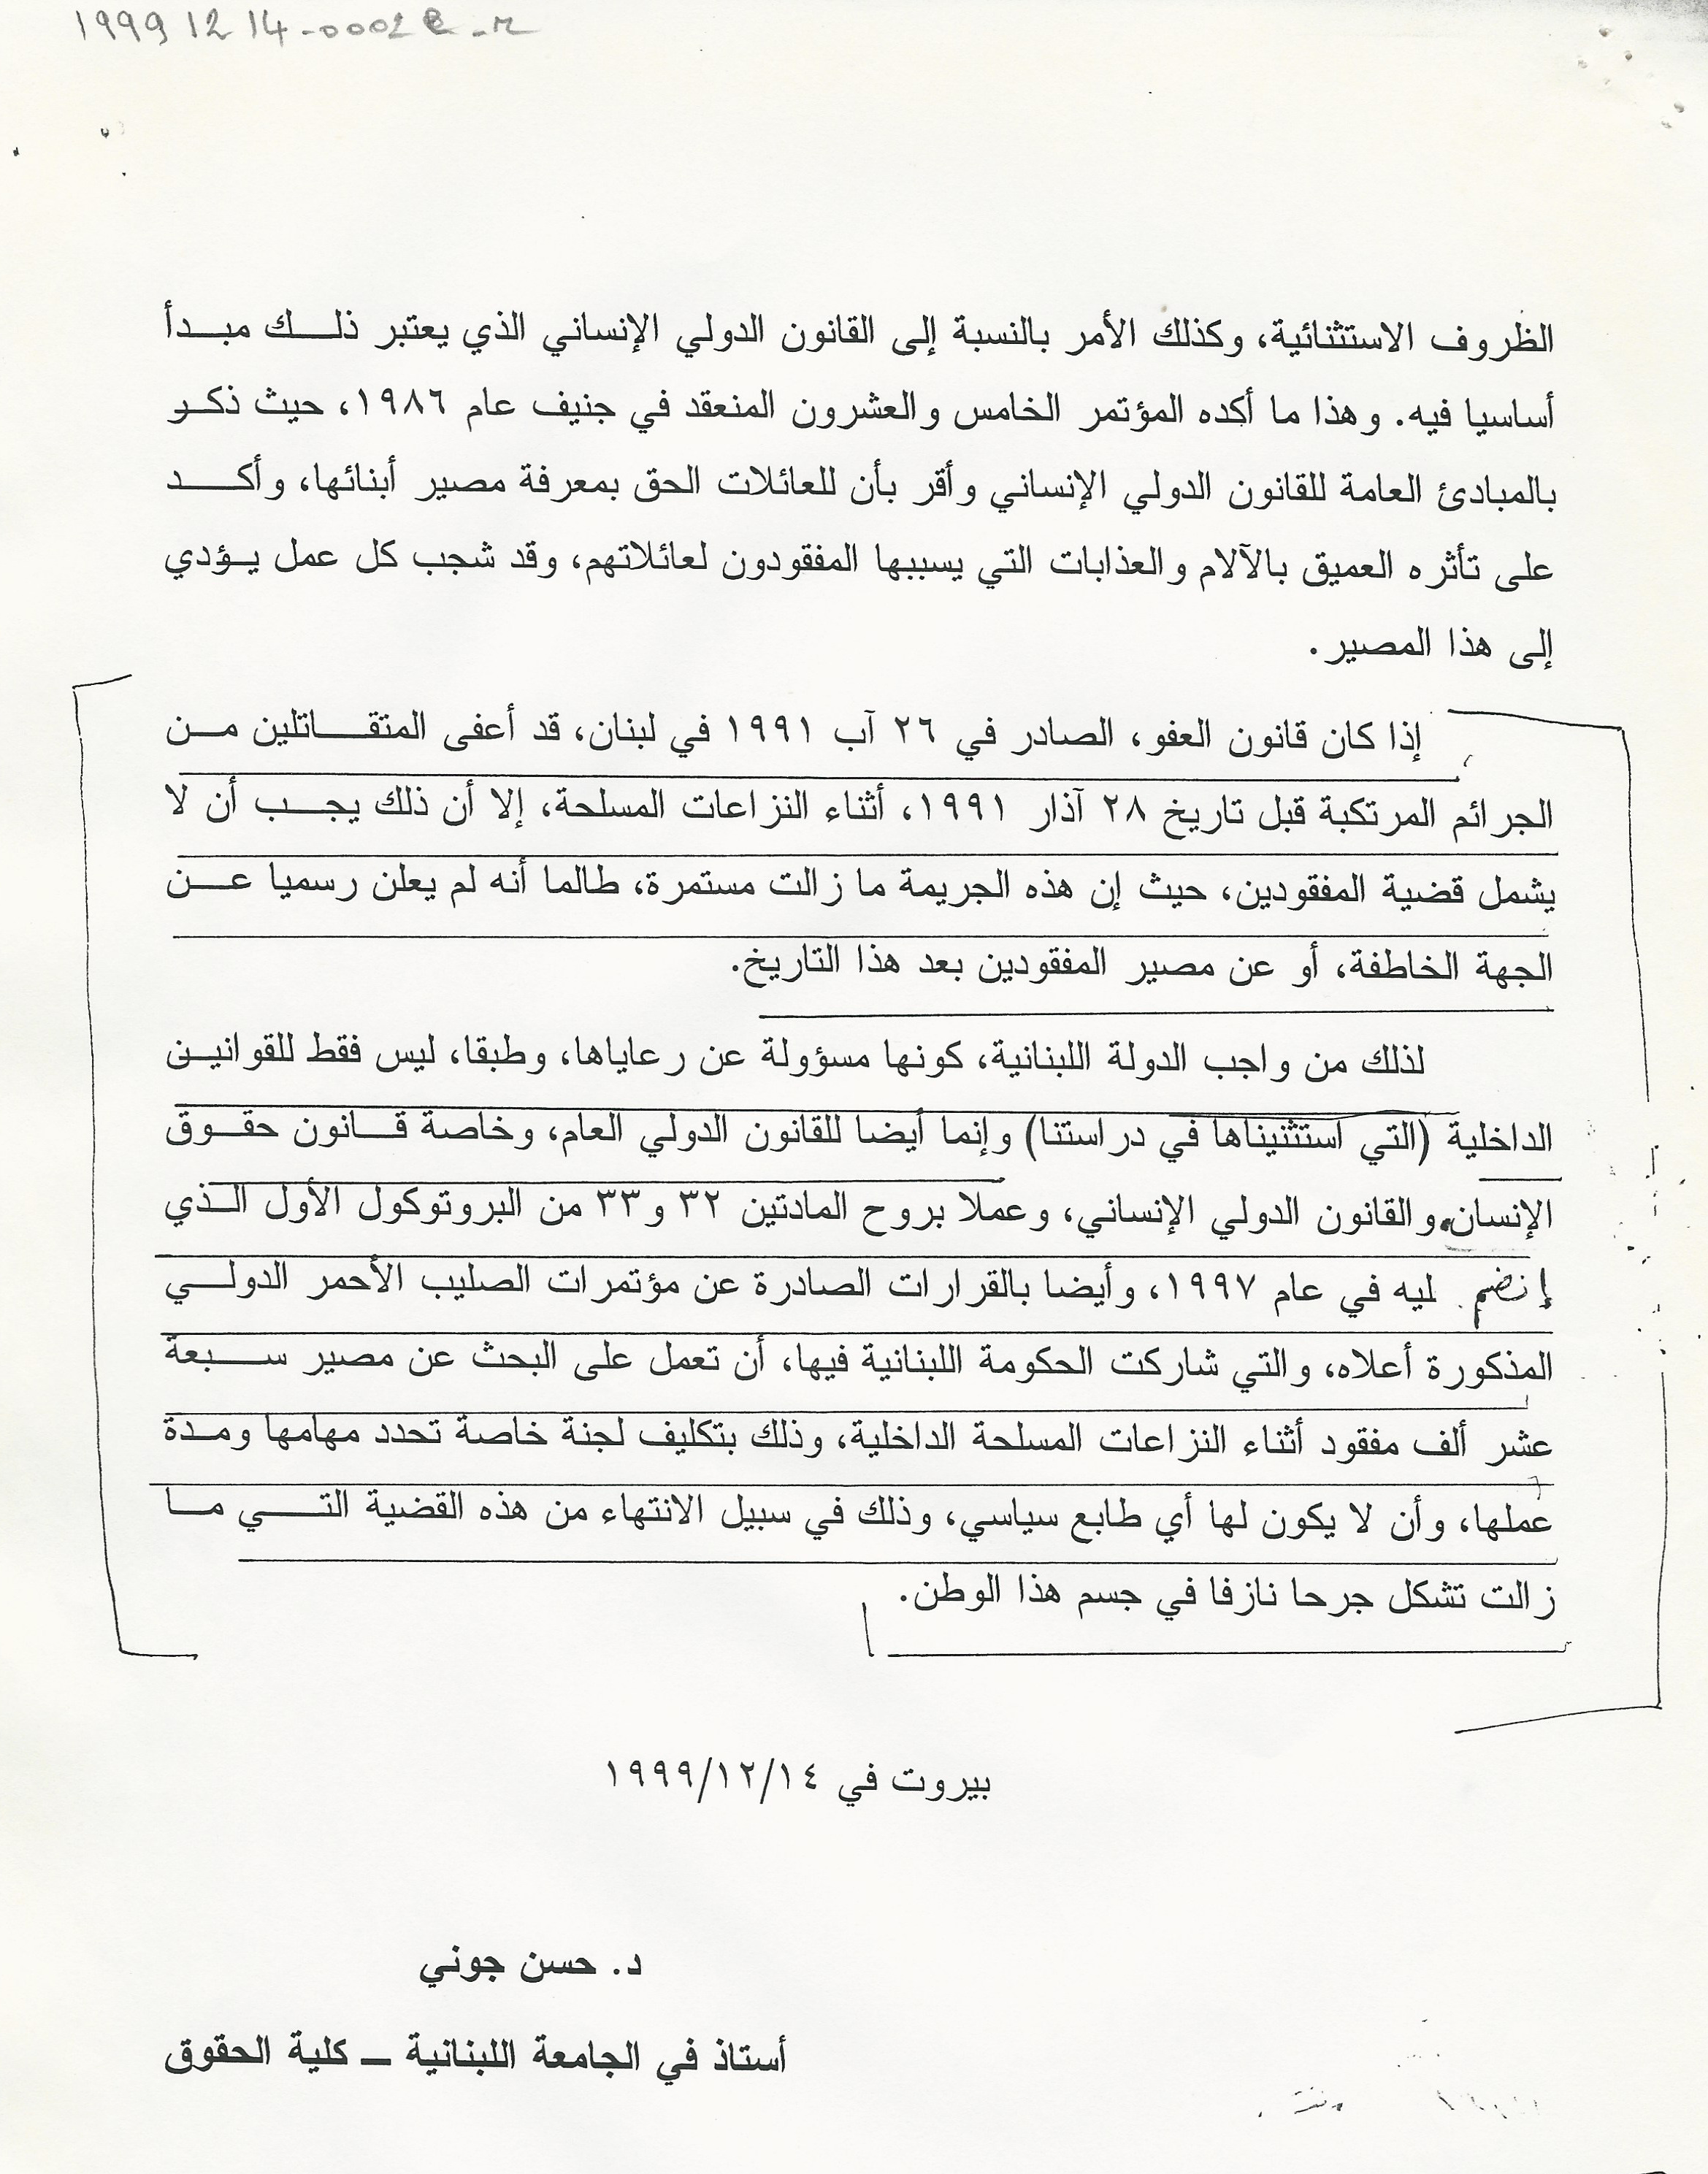 1999 12 14-0002
الظروف الاستثنائية، وكذلك الأمر بالنسبة إلى القانون الدولي الإنساني الذي يعتبر ذلك مبدأ
أساسيا فيه. وهذا ما أكده المؤتمر الخامس والعشرون المنعقد في جنيف عام ١٩٨٦، حيث ذكر
بالمبادئ العامة للقانون الدولي الإنساني وأقر بأن للعائلات الحق بمعرفة مصير أبنائها، وأكد
على تأثره العميق بالآلام والعذابات التي يسببها المفقودون لعائلاتهم، وقد شجب كل عمل يؤدي
إلى هذا المصير.
إذا كان قانون العفو، الصادر في ٢٦ آب ١٩٩١ في لبنان، قد أعفى المتقاتلين من
الجرائم المرتكبة قبل تاريخ ٢٨ آذار ١٩٩١، أثناء النزاعات المسلحة، إلا أن ذلك يجب أن لا
يشمل قضية المفقودين، حيث إن هذه الجريمة ما زالت مستمرة، طالما أنه لم يعلن رسميا عن
الجهة الخاطفة، أو عن مصير المفقودين بعد هذا التاريخ.
لذلك من واجب الدولة اللبنانية، كونها مسؤولة عن رعاياها، وطبقا، ليس فقط للقوانين
الداخلية (التي استثنيناها في دراستنا) وإنما أيضا للقانون الدولي العام، وخاصة قانون حقوق
الإنسان والقانون الدولي الإنساني، وعملا بروح المادتين ٣٢ و٣٣ من البروتوكول الأول الذي
إنضم ليه في عام ١٩٩٧، وأيضا بالقرارات الصادرة عن مؤتمرات الصليب الأحمر الدولي
المذكورة أعلاه، والتي شاركت الحكومة اللبنانية فيها، أن تعمل على البحث عن مصير سبعة
عشر ألف مفقود أثناء النزاعات المسلحة الداخلية، وذلك بتكليف لجنة خاصة تحدد مهامها ومدة
عملها، وأن لا يكون لها أي طابع سياسي، وذلك في سبيل الانتهاء من هذه القضية التي ما
زالت تشكل جرحا نازفا في جسم هذا الوطن.
بيروت في ١٩٩٩/١٢/١٤
د. حسن جوني
أستاذ في الجامعة اللبنانية – كلية الحقوق